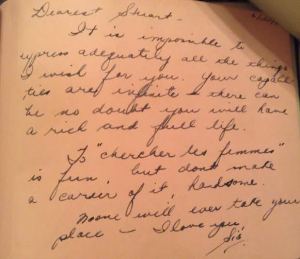 Dearest Stuart -
It is impossible to
express adequately all the things
I wish for you. Your capabli
ties are infinite & there can
be no doubt you will have
a rich and full life.
To "chercher les femmes"
is fun, but dont make
a career of it, handsome.
Noone will ever take your
place - I love you,
Sis.